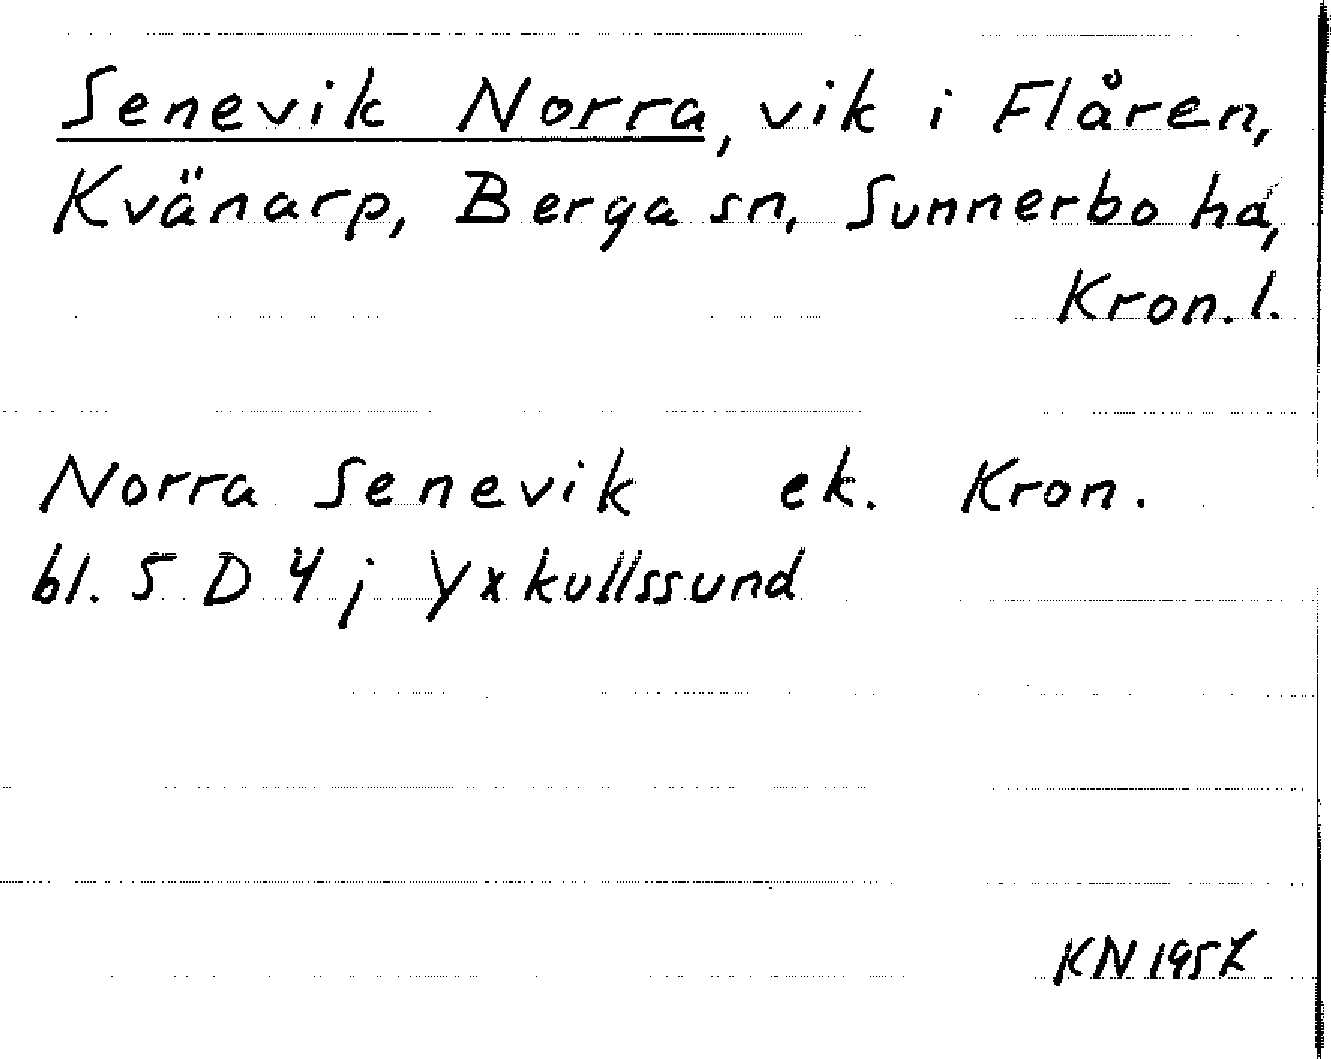 Senevik Norra, vik i Flåren,
Kvänarp, Berga sn, Sunnerbo hd,
Kron. l.
Norra Senevik ek. Kron.
bl. 5 D 4 j Yxkullssund
KN 1957